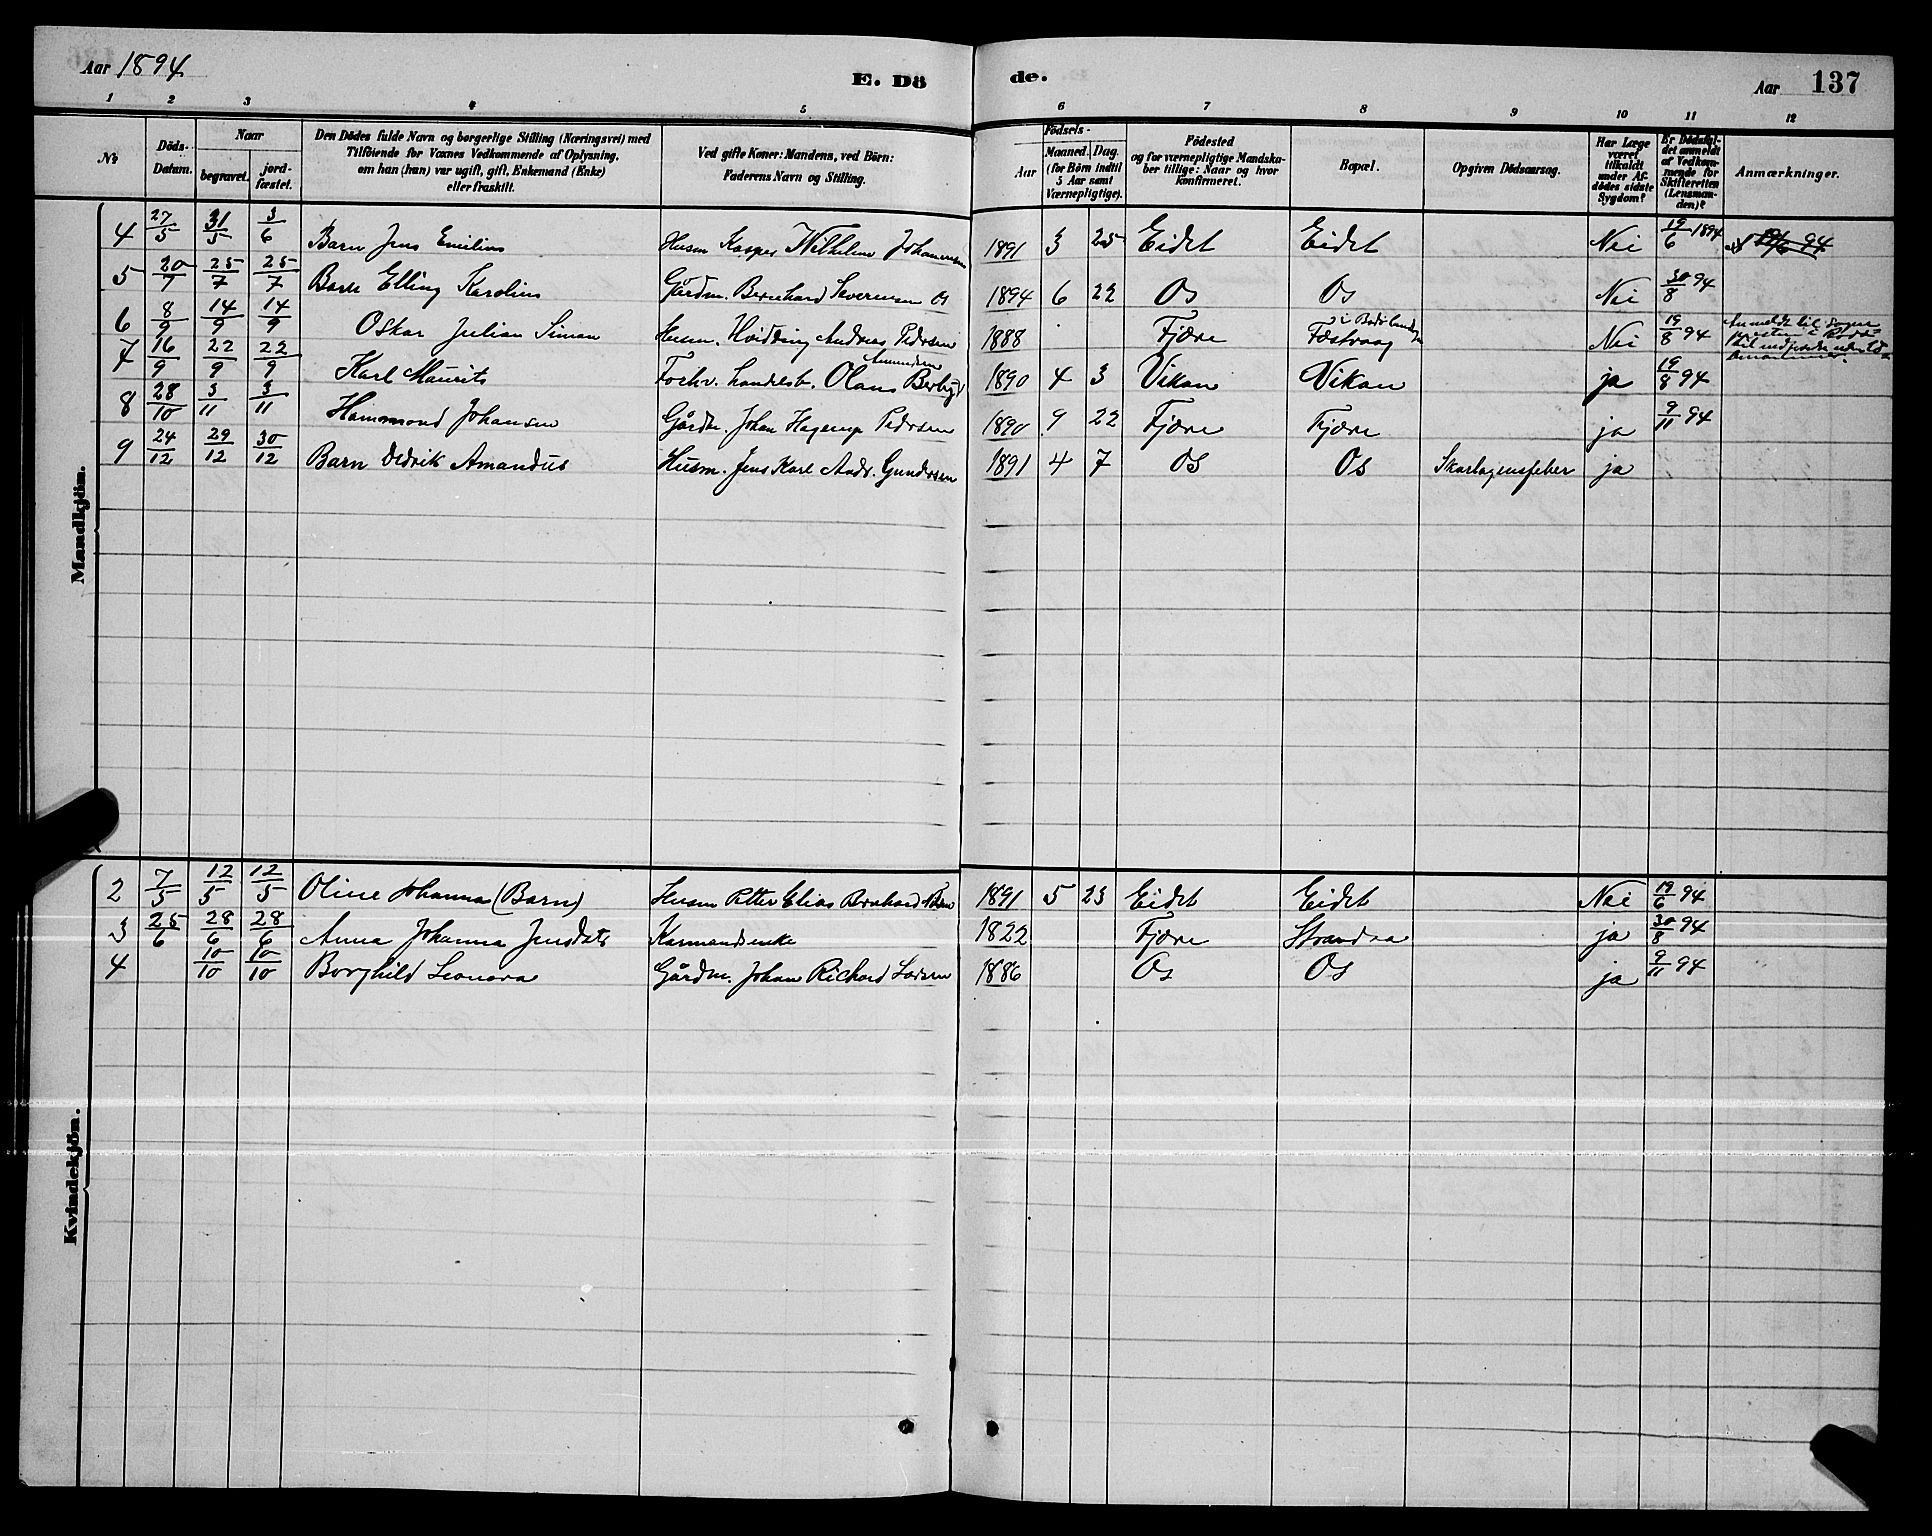 Aar 1894
E. Dö
de.
Aar 137
1 2 3 4 5 6 7 8 9 10 11 12
No
Döds-Datum.
Naar
begravet.
jord-fæstet.
Den Dödes fulde Navn og borgerlige Stilling (Næringsvei) med
Tilföiende for Voxnes Vedkommende af Oplysning,
om han (hun) var ugift, gift, Enkemand (Enke)
eller fraskilt.
Ved gifte Koner: Mandens, ved Börn:
Faderens Navn og Stilling.
Födsels-
Aar
Maaned. Dag.
(for Börn indtil
5 Aar samt
Værnepligtige).
Födested
og for værnepligtige Mandska-
ber tillige: Naar og hvor
konfirmeret.
Bopæl.
Opgiven Dödsaarsag.
Har Læge
været
tilkaldt
under Af-
dödes sidste
Sygdom?
Er Dödsfal-
det anmeldt
af Vedkom-
mende for
Skifteretten
(Lensman-
den)?
Anmærkninger.
Mandkjön.
4 27/5 31/5 3/6 Barn Jens Emilius Husm Kasper Wilhelm Johannesen 1891 3 25 Eidet Eidet Nei 19/6 1894
5 20/7 25/7 25/7 Barn Elling Karolius Gårdm. Bernhard Severinsen Os 1894 6 22 Os Os Nei 30/8 94
6 8/9 14/9 14/9 Oskar Julian Simon Husm. Hvidding Andreas Pedersen 1888 Fjære Festvaag Nei 19/8 94 Anmeldt til Sogne
7 16/9 22/9 22/9 Karl Maurits Forhv. Landesb. Olaus Amundsen 1890 4 3 Vikan Vikan ja 19/8 94
8 28/10 3/11 3/11 Hammond Johansen Gårdm. Johan Hagerup Pedersen 1890 9 22 Fjære Fjære ja 9/11 94
9 24/12 29/12 30/12 Barn Didrik Amandus Husm. Jens Karl Andr. Gundersen 1891 4 7 Os Os Skarlagensfeber ja
Kvindekjön.
2 7/5 12/5 12/5 Oline Johanna (Barn) Husm Petter Elias Bernhard 1891 5 23 Eidet Eidet Nei 19/6 94
3 25/6 28/6 28/6 Anna Johanna Jensdatr Kaarmandsenke 1822 Fjære Strandaa ja 30/8 94
4 10/10 10/10 Borghild Leonora Gårdm. Johan Richard Larsen 1886 Os Os ja 9/11 94